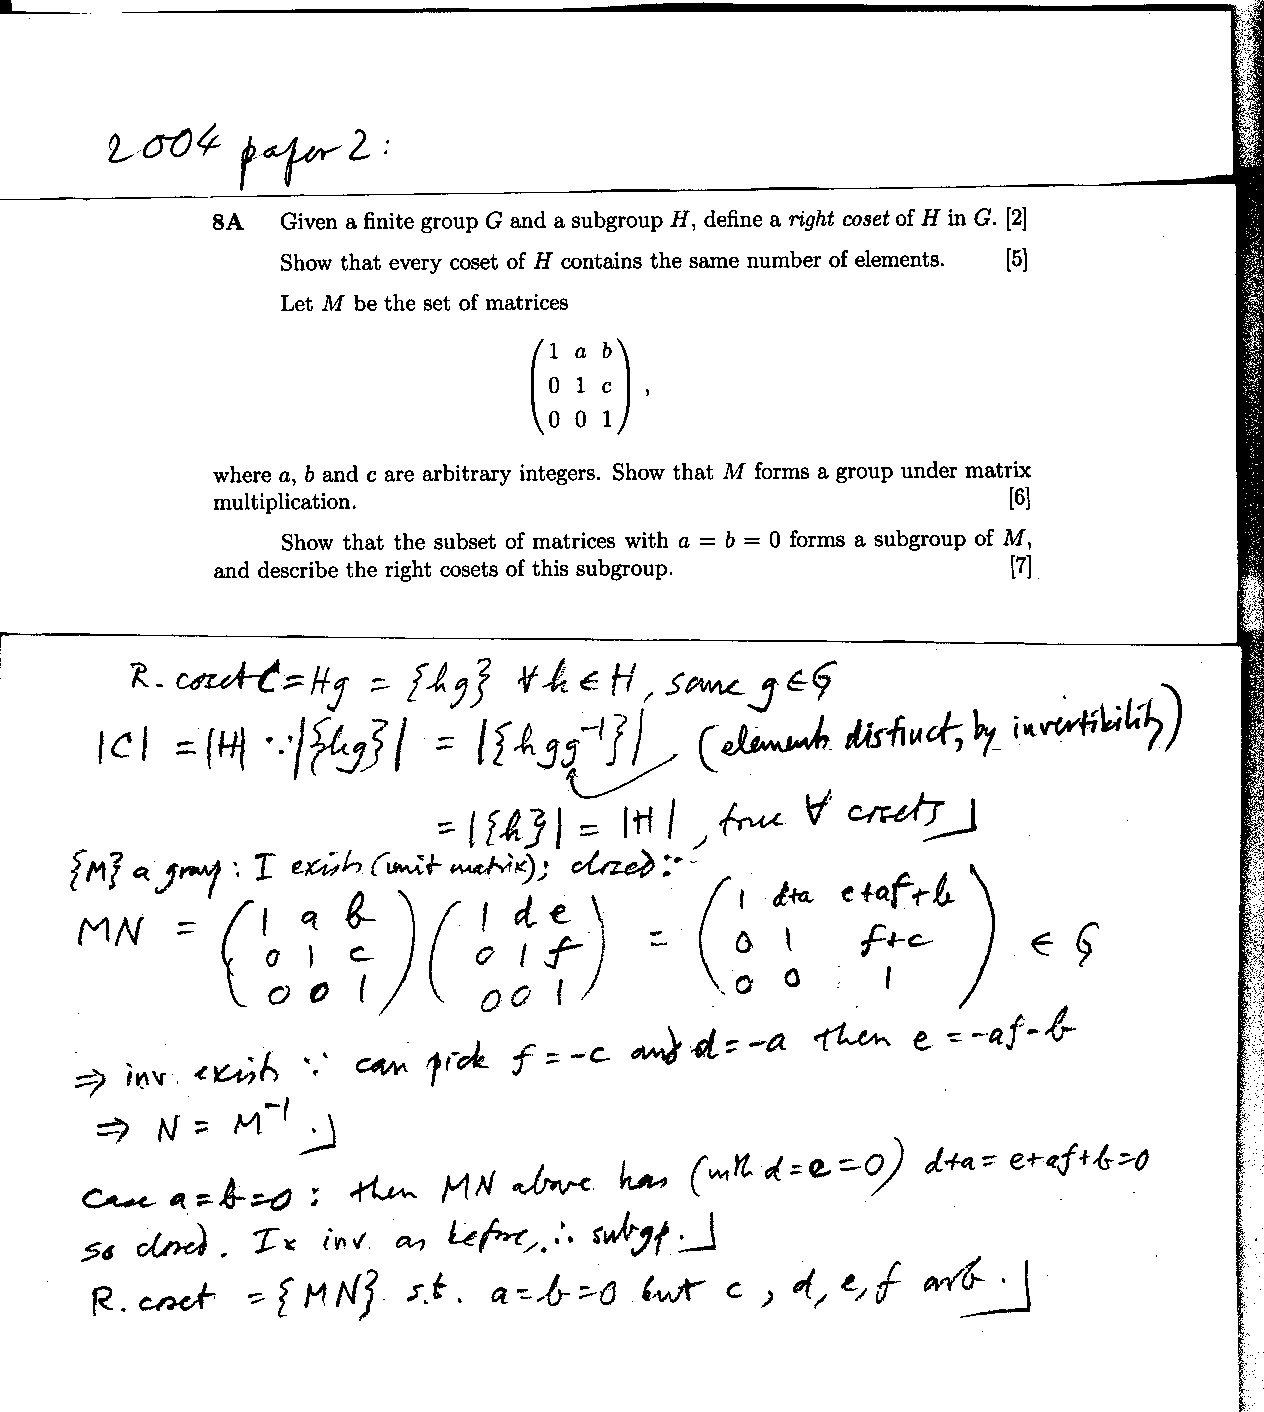 2004 paper 2:
8A Given a finite group G and a subgroup H, define a right coset of H in G. [2]
Show that every coset of H contains the same number of elements. [5]
Let M be the set of matrices
( 1 a b
0 1 c
0 0 1 ) ,
where a, b and c are arbitrary integers. Show that M forms a group under matrix
multiplication. [6]
Show that the subset of matrices with a = b = 0 forms a subgroup of M,
and describe the right cosets of this subgroup. [7]
R. coset C = Hg = {hg} ∀ h ∈ H, some g ∈ G
|C| = |H| ∵ |{hg}| = |{hgg⁻¹}| (elements distinct, by invertibility)
= |{h}| = |H|, true ∀ cosets
{M} a group: I exists (unit matrix); closed ∵
MN = ( 1 a b ) ( 1 d e ) = ( 1 d+a e+af+b )
0 1 c 0 1 f 0 1 f+c ∈ G
0 0 1 0 0 1 0 0 1
⇒ inv. exists ∵ can pick f = -c and d = -a then e = -af-b
⇒ N = M⁻¹.
Case a = b = 0 : then MN above has (with d = e = 0) d+a = e+af+b = 0
so closed. I & inv. as before, ∴ subgp.
R. coset = {MN} s.t. a = b = 0 but c, d, e, f arb.